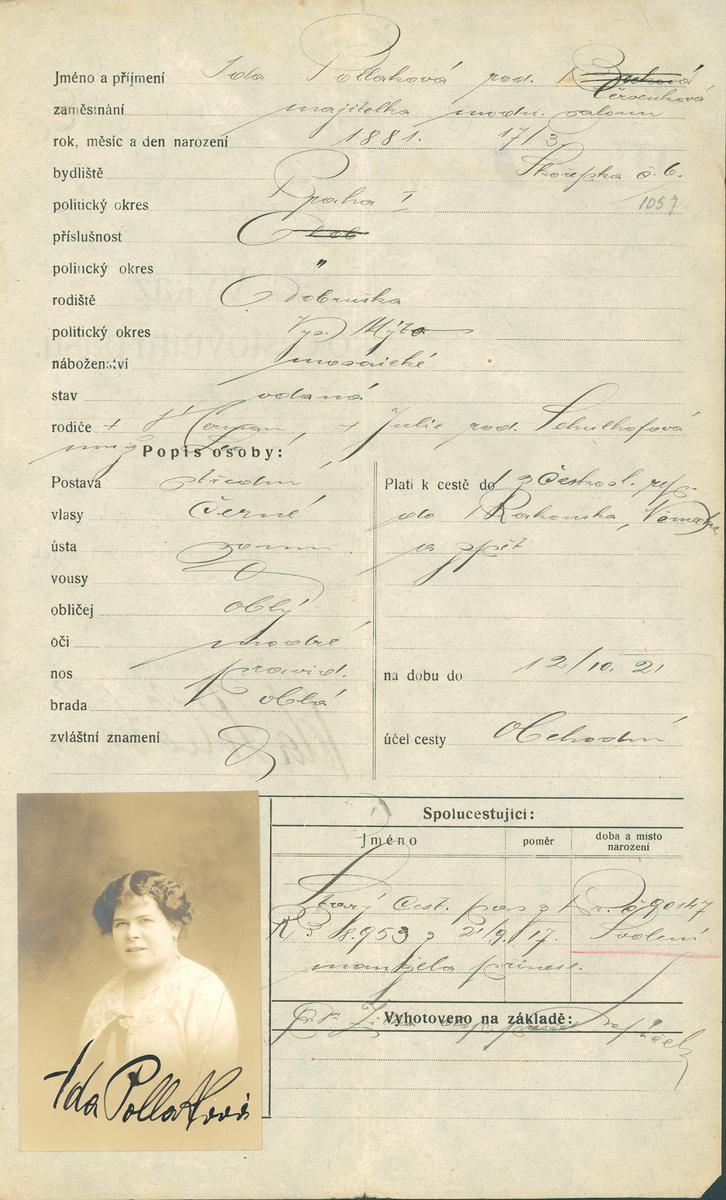 Jméno a příjmení Ida Pollaková roz.
Červenková
zaměstnání majitelka modn. salonu
rok, měsíc a den narození 1881. 17/3
bydliště Skořepka č. 6.
politický okres Praha I 1057
příslušnost
politický okres "
rodiště Dobruška
politický okres Vys. Mýto
náboženství mosaické
stav vdaná
rodiče + + Julie roz. Schulhofová
muž
Popis osoby:
Postava střední Platí k cestě do z Českosl. rep.
vlasy černé do Rakouska, Německa
ústa a zpět
vousy
obličej oblý
oči modré
nos pravid. na dobu do 12/10. 21
brada oblá
zvláštní znamení účel cesty Obchodní
Spolucestující:
Jméno poměr doba a místo narození
Starý cest. pas z 90147
18.953 z 21/9. 17. Svolení
manžela přinese.
Vyhotoveno na základě:
Ida Pollaková